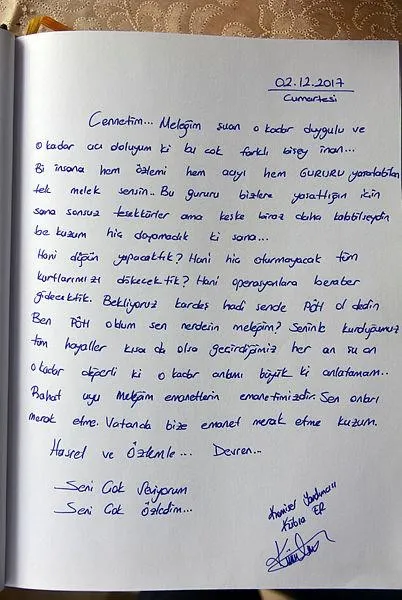 02.12.2017
Cumartesi
Cennetim... Meleğim şuan o kadar duygulu ve
o kadar acı doluyum ki bu çok farklı bişey inan...
Bi insana hem özlemi hem acıyı hem GURURU yaşatabilen
tek melek sensin.. Bu gururu bizlere yaşattığın için
sana sonsuz teşekkürler ama keşke biraz daha kalabilseydin
be kuzum hiç doyamadık ki sana...
Hani düğün yapacaktık? Hani hiç oturmayacak tüm
kurtlarımızı dökecektik? Hani operasyonlara beraber
gidecektik. Bekliyoruz kardeş hadi sende PÖH ol dedin
Ben PÖH oldum sen nerdesin meleğim? Senink kurduğumuz
tüm hayaller kısa da olsa geçirdiğimiz her an şu an
o kadar değerli ki o kadar anlamı büyük ki anlatamam..
Rahat uyu Meleğim emanetlerin emanetimizdir. Sen onları
merak etme. Vatanda bize emanet merak etme kuzum.
Hasret ve Özlemle... Devren...
Seni Çok Seviyorum
Seni Çok Özledim...
Komiser Yardımcısı
Kübra ER